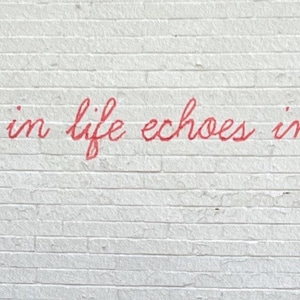 in life echoes in